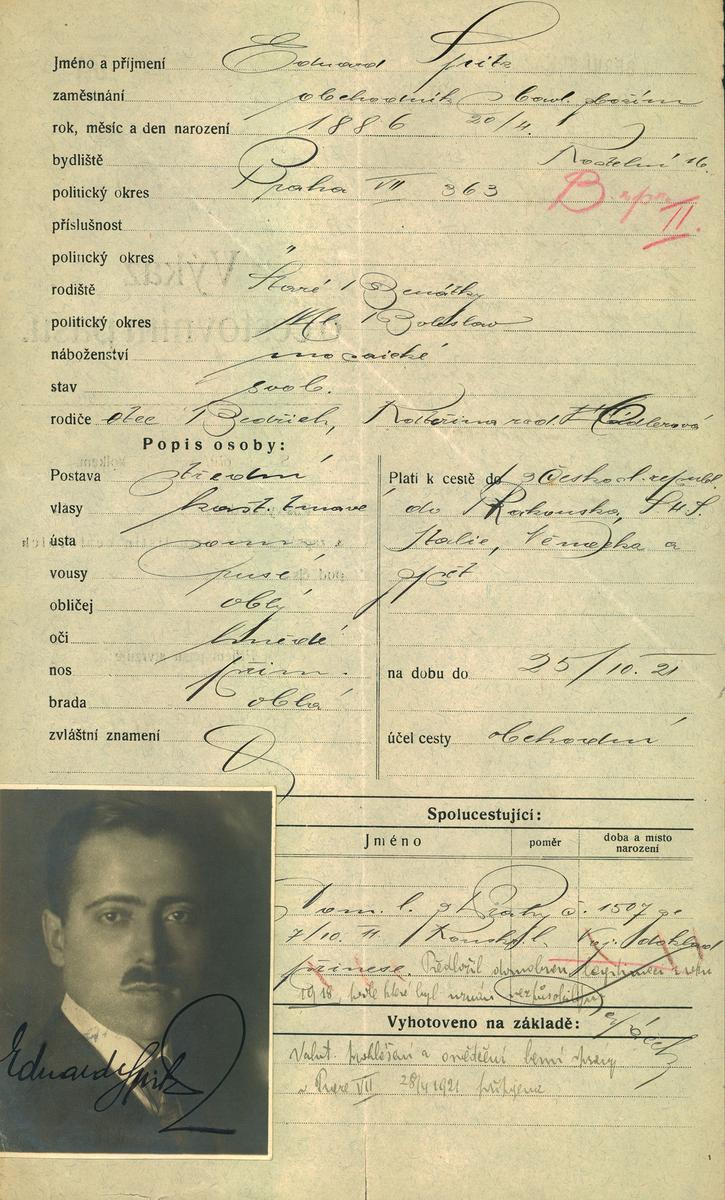 Jméno a příjmení Eduard Spitz
zaměstnání obchodník bavl. zbožím
rok, měsíc a den narození 1886 20/4.
bydliště
politický okres Praha VII 363
B II.
příslušnost
politický okres "
rodiště Staré Benátky
politický okres Ml. Boleslav
náboženství mosaické
stav svob.
rodiče otec Bedřich, Kateřina roz.
Popis osoby:
Postava střední
vlasy kašt. tmavé
ústa
vousy
obličej oblý
oči hnědé
nos přim.
brada oblá
zvláštní znamení
Platí k cestě do Českosl. republ.
do Rakouska, S.H.S.
Italie, Německa a
zpět
na dobu do 25/10. 21
účel cesty obchodní
Spolucestující:
Jméno poměr doba a místo narození
Dom. l. z Prahy č. 1507 ze
7/10. 11. Voj. doklad
přinese. Předložil domobran. legitimaci z roku
1918, podle které byl uznán
Vyhotoveno na základě:
a osvědčení berní správy
v Praze VII 28/4 1921
Eduard Spitz